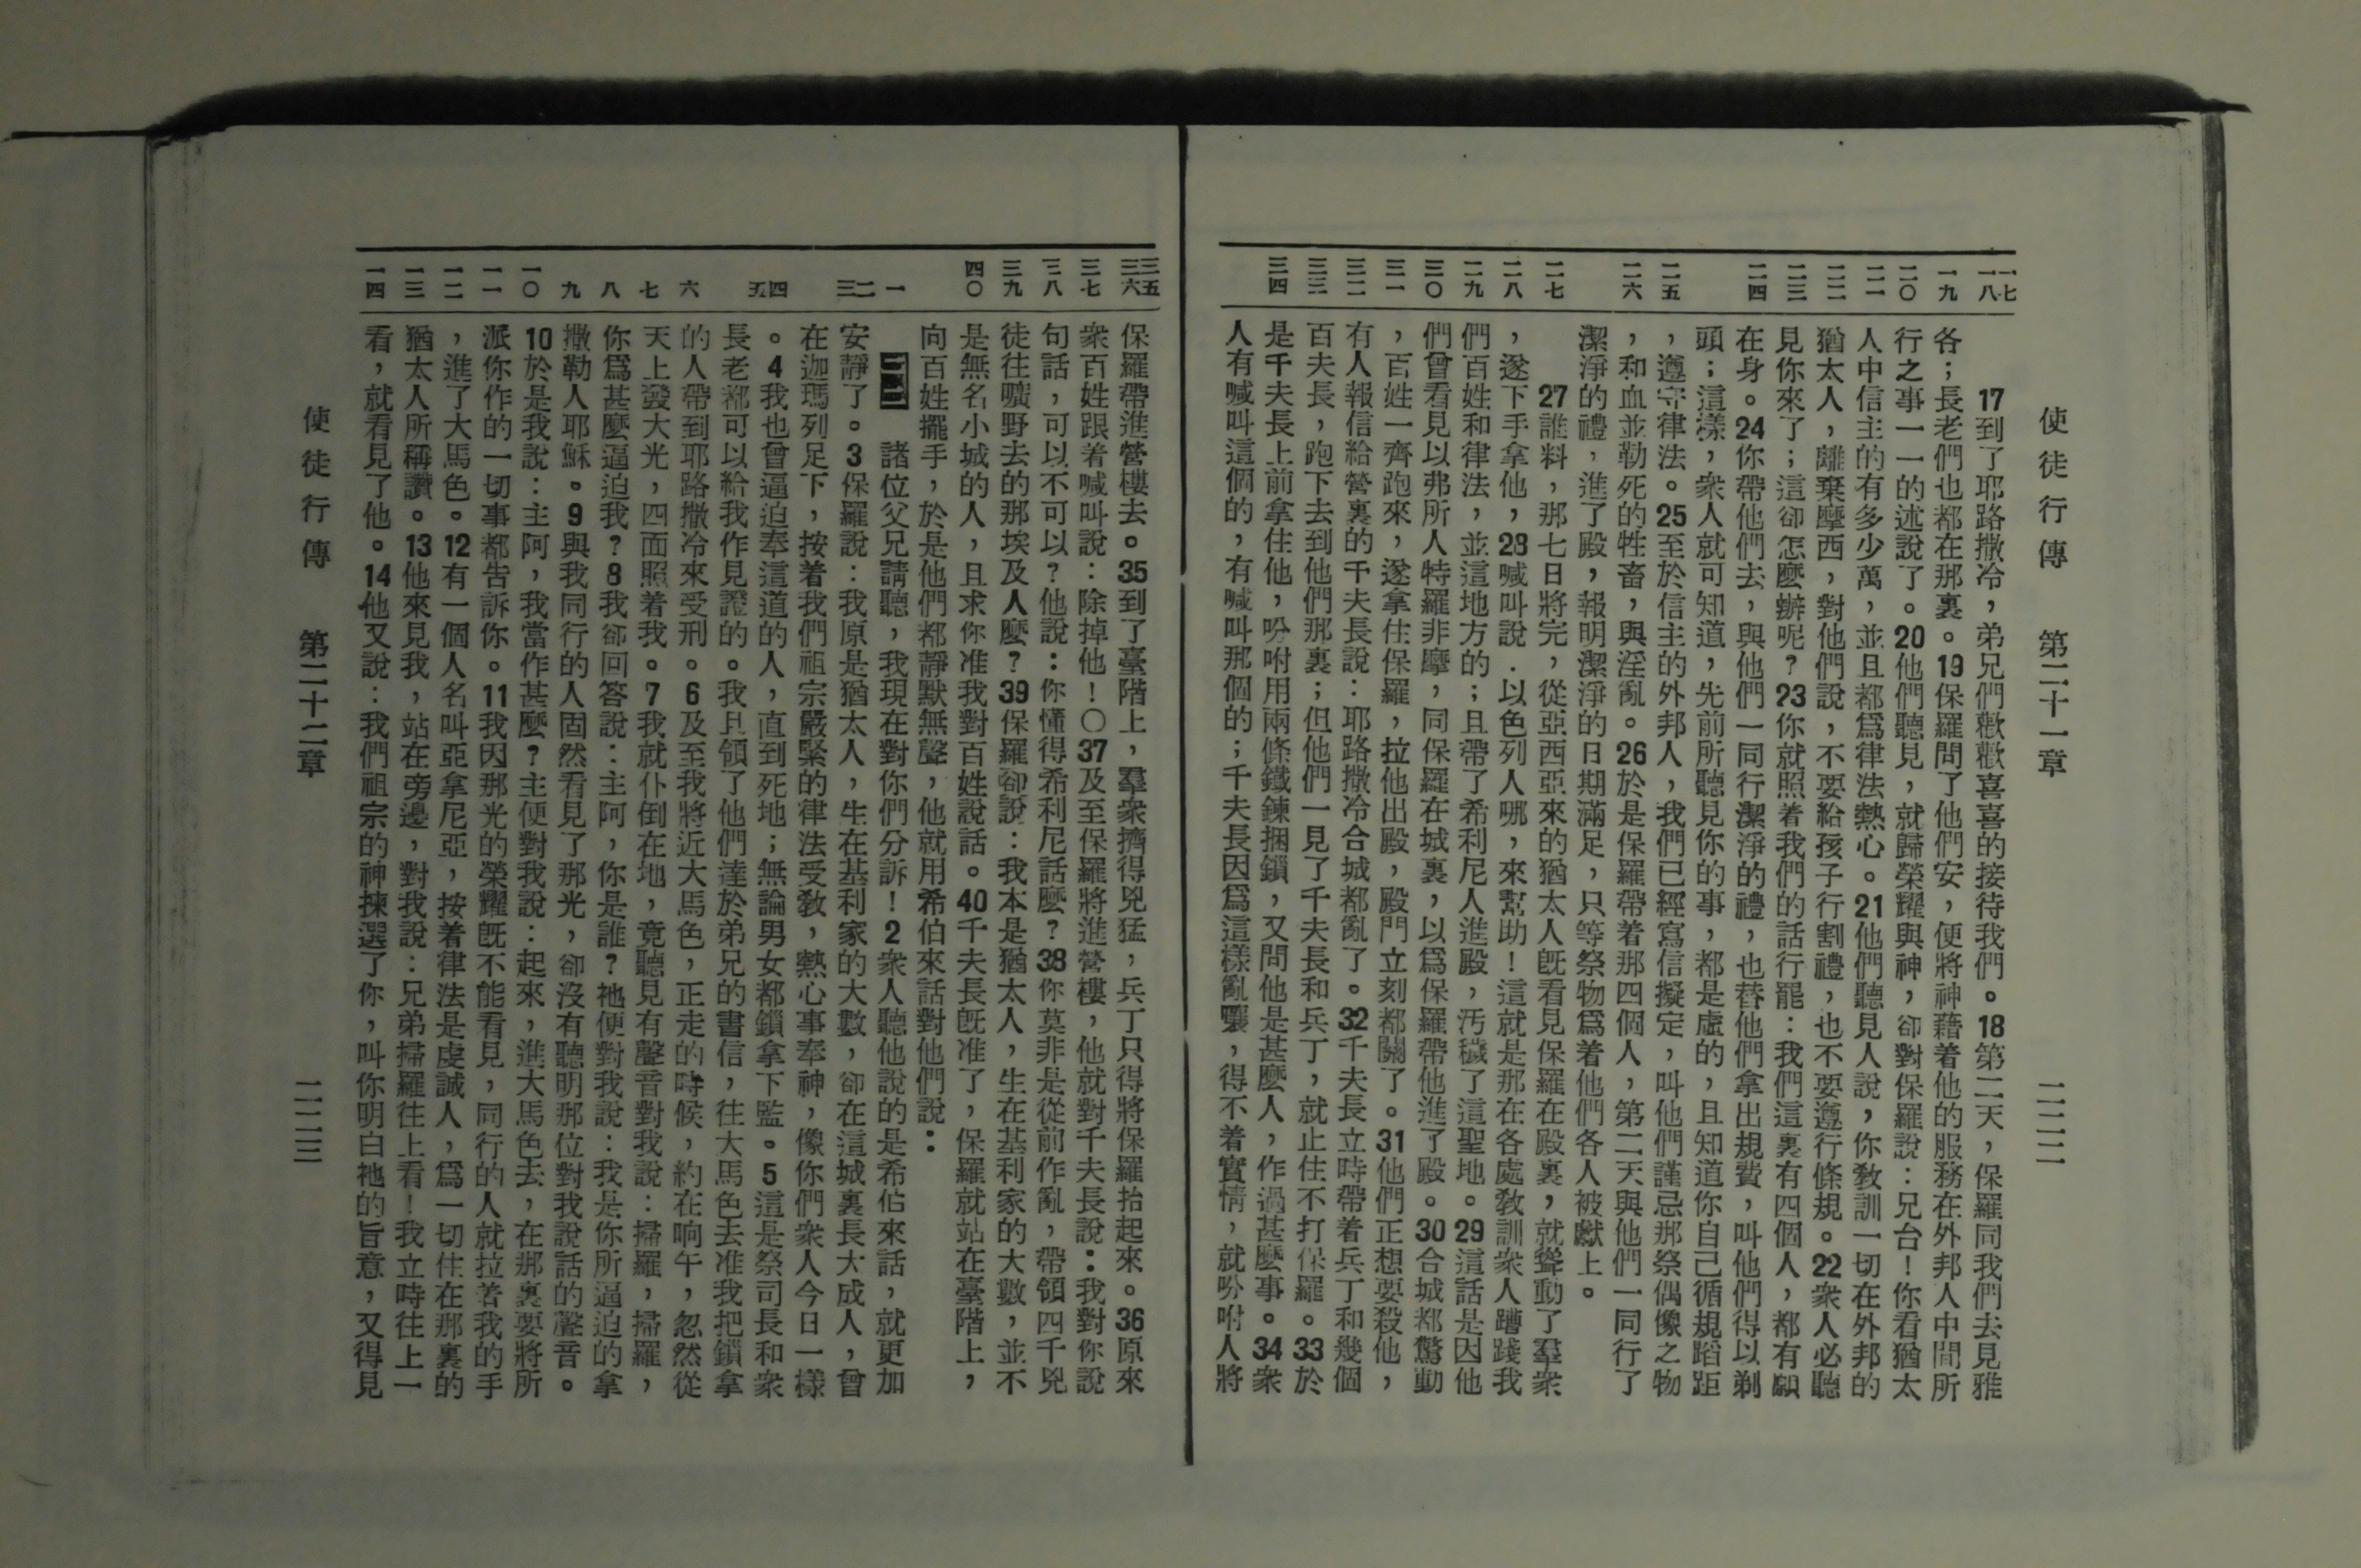 使徒行傳　第二十一章　二二二
一七
一八
一九
二〇
二一
二二
二三
二四
二五
二六
二七
二八
二九
三〇
三一
三二
三三
三四
17到了耶路撒冷，弟兄們歡歡喜喜的接待我們。18第二天，保羅同我們去見雅
各；長老們也都在那裏。19保羅問了他們安，便將神藉着他的服務在外邦人中間所
行之事一一的述說了。20他們聽見，就歸榮耀與神，卻對保羅說：兄台！你看猶太
人中信主的有多少萬，並且都爲律法熱心。21他們聽見人說，你教訓一切在外邦的
猶太人，離棄摩西，對他們說，不要給孩子行割禮，也不要遵行條規。22衆人必聽
見你來了；這卻怎麼辦呢？23你就照着我們的話行罷：我們這裏有四個人，都有願
在身。24你帶他們去，與他們一同行潔淨的禮，也替他們拿出規費，叫他們得以剃
頭；這樣，衆人就可知道，先前所聽見你的事，都是虛的，且知道你自己循規蹈距
，遵守律法。25至於信主的外邦人，我們已經寫信擬定，叫他們謹忌那祭偶像之物
，和血並勒死的牲畜，與淫亂。26於是保羅帶着那四個人，第二天與他們一同行了
潔淨的禮，進了殿，報明潔淨的日期滿足，只等祭物爲着他們各人被獻上。
27誰料，那七日將完，從亞西亞來的猶太人旣看見保羅在殿裏，就聳動了羣衆
，遂下手拿他，28喊叫說：以色列人哪，來幫助！這就是那在各處敎訓衆人蹧踐我
們百姓和律法，並這地方的；且帶了希利尼人進殿，汚穢了這聖地。29這話是因他
們曾看見以弗所人特羅非摩，同保羅在城裏，以爲保羅帶他進了殿。30合城都驚動
，百姓一齊跑來，遂拿住保羅，拉他出殿，殿門立刻都關了。31他們正想要殺他，
有人報信給營裏的千夫長說：耶路撒冷合城都亂了。32千夫長立時帶着兵丁和幾個
百夫長，跑下去到他們那裏；但他們一見了千夫長和兵丁，就止住不打保羅。33於
是千夫長上前拿住他，吩咐用兩條鐵鍊捆鎖，又問他是甚麼人，作過甚麼事。34衆
人有喊叫這個的，有喊叫那個的；千夫長因爲這樣亂嚷，得不着實情，就吩咐人將
三五
三六
三七
三八
三九
四〇
一
二
三
四
五
六
七
八
九
一〇
一一
一二
一三
一四
保羅帶進營樓去。35到了臺階上，羣衆擠得兇猛，兵丁只得將保羅抬起來。36原來
衆百姓跟着喊叫說：除掉他！〇37及至保羅將進營樓，他就對千夫長說：我對你說
句話，可以不可以？他說：你懂得希利尼話麼？38你莫非是從前作亂，帶領四千兇
徒往曠野去的那埃及人麼？39保羅卻說：我本是猶太人，生在基利家的大數，並不
是無名小城的人，且求你准我對百姓說話。40千夫長旣准了，保羅就站在臺階上，
向百姓擺手，於是他們都靜默無聲，他就用希伯來話對他們說：
二二　諸位父兄請聽，我現在對你們分訴！2衆人聽他說的是希伯來話，就更加
安靜了。3保羅說：我原是猶太人，生在基利家的大數，卻在這城裏長大成人，曾
在迦瑪列足下，按着我們祖宗嚴緊的律法受敎，熱心事奉神，像你們衆人今日一樣
。4我也曾逼迫奉這道的人，直到死地；無論男女都鎖拿下監。5這是祭司長和衆
長老都可以給我作見證的。我且領了他們達於弟兄的書信，往大馬色去准我把鎖拿
的人帶到耶路撒冷來受刑。6及至我將近大馬色，正走的時候，約在晌午，忽然從
天上發大光，四面照着我。7我就仆倒在地，竟聽見有聲音對我說：掃羅，掃羅，
你爲甚麼逼迫我？8我卻回答說：主阿，你是誰？祂便對我說：我是你所逼迫的拿
撒勒人耶穌。9與我同行的人固然看見了那光，卻沒有聽明那位對我說話的聲音。
10於是我說：主阿，我當作甚麼？主便對我說：起來，進大馬色去，在那裏要將所
派你作的一切事都告訴你。11我因那光的榮耀旣不能看見，同行的人就拉着我的手
，進了大馬色。12有一個人名叫亞拿尼亞，按着律法是虔誠人，爲一切住在那裏的
猶太人所稱讚。13他來見我，站在旁邊，對我說：兄弟掃羅往上看！我立時往上一
看，就看見了他。14他又說：我們祖宗的神揀選了你，叫你明白祂的旨意，又得見
使徒行傳　第二十二章　二二三